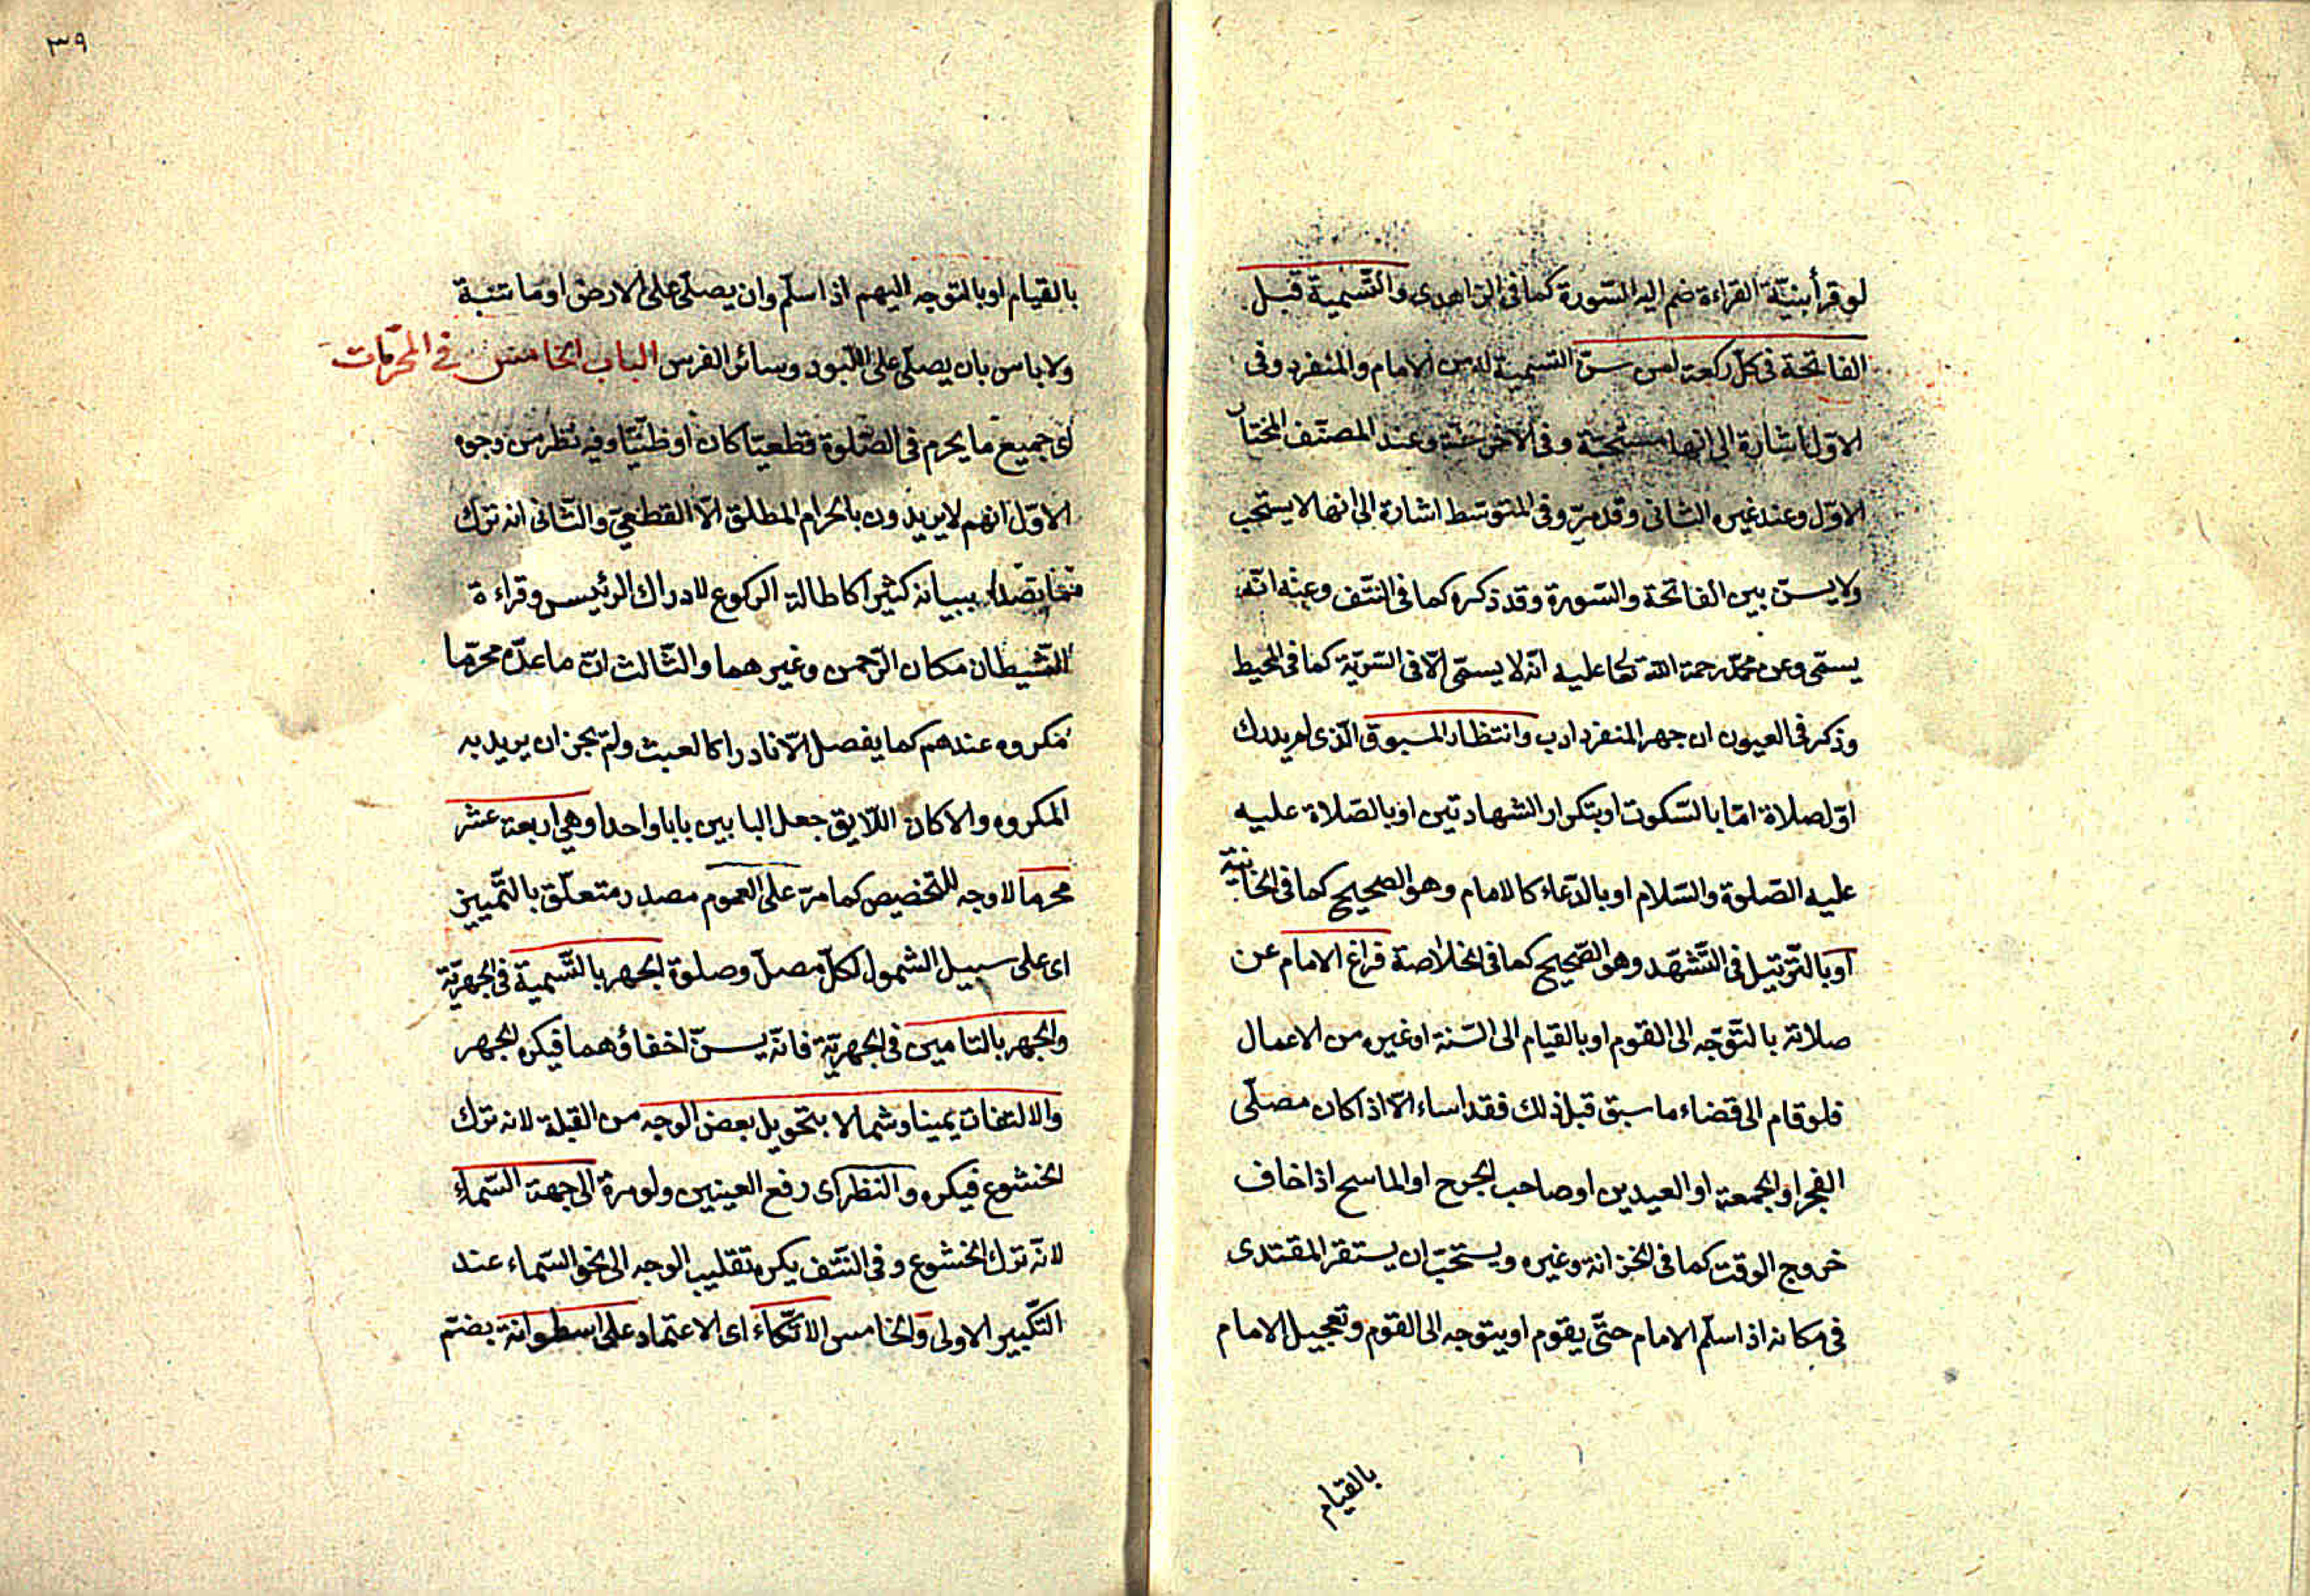 لو قرأ بنيّة القراءة ضم اليه السّورة كما فى الزاهدى والتّسمية قبل
الفاتحة فى كلّ ركعة لمن سنّ التسمية له من الامام والمنفرد وفى
الاوّل اشارة الى انها مستحبّة وفى الاخر سنّة وعند المصنّف المختار
الاوّل وعند غيره الثانى وقد مرّ وفى المتوسّط اشارة الى انها لا يستحب
ولا يسنّ بين الفاتحة والسّورة وقد ذكره كما فى النّتف وعنه انّه
يسمّى وعن محمّد رحمة الله تعا عليه انّه لا يسمّى الّا فى السّرّيّة كما فى المحيط
وذكر فى العيون ان جهر المنفرد ادب وانتظار المسبوق الّذى لم يدرك
اوّل صلاة امّا بالسّكوت او بتكرار الشهادتين او بالصّلاة عليه
عليه الصّلوة والسّلام او بالدّعاء كالامام وهو الصحيح كما فى الخانيّة
او بالتّرتيل فى التّشهّد وهو الصّحيح كما فى الخلاصة فراغ الامام عن
صلاته بالتّوجّه الى القوم او بالقيام الى السّنة او غيره من الاعمال
فلو قام الى قضاء ما سبق قبل ذلك فقد اساء الّا اذا كان مصلّى
الفجر او الجمعة او العيدين او صاحب الجرح او الماسح اذا خاف
خروج الوقت كما فى الخزانة وغيره ويستحبّ ان يستقر المقتدى
فى مكانه اذا سلّم الامام حتّى يقوم او يتوجه الى القوم وتعجيل الامام
بالقيام
٣٩
بالقيام او بالتوجه اليهم اذا سلّم وان يصلّى على الارض او ما تنبة
ولا باس بان يصلّى على اللّبود وسائر الفرس الباب الخامس فى المحرّمات
اى جميع ما يحرم فى الصّلوة قطعيّا كان او ظنّيّا وفيه نظر من وجوه
الاوّل انهم لا يريدون بالحرام المطلق الّا القطعىّ والثّانى انه ترك
ببيانه كثيرا كاطالة الركوع لادراك الرئيس وقراءة
الشّيطان مكان الرّحمن وغيرهما والثّالث انّ ما عدّه محرّما
مكروه عندهم كما يفصل الّا نادرا كالعبث ولم يجز ان يريد به
المكروه والا كان اللّايق جعل البابين بابا واحدا وهى اربعة عشر
محرما لا وجه للتخصيص كما مرّ على العموم مصدر متعلّق بالتّمييز
اى على سبيل الشمول لكلّ مصلّ وصلوة الجهر بالتّسمية فى الجهريّة
والجهر بالتامين فى الجهريّة فانّه يسنّ اخفاؤهما فيكره الجهر
والالتفات يمينا وشمالا بتحويل بعض الوجه من القبلة لانه ترك
الخشوع فيكره والنظر اى رفع العينين ولو مرة الى جهة السّماء
لانّه ترك الخشوع وفى النّتف يكره تقليب الوجه الى نحو السّماء عند
التّكبير الاولى والخامس الاتّكاء اى الاعتماد على اسطوانة بضمّ